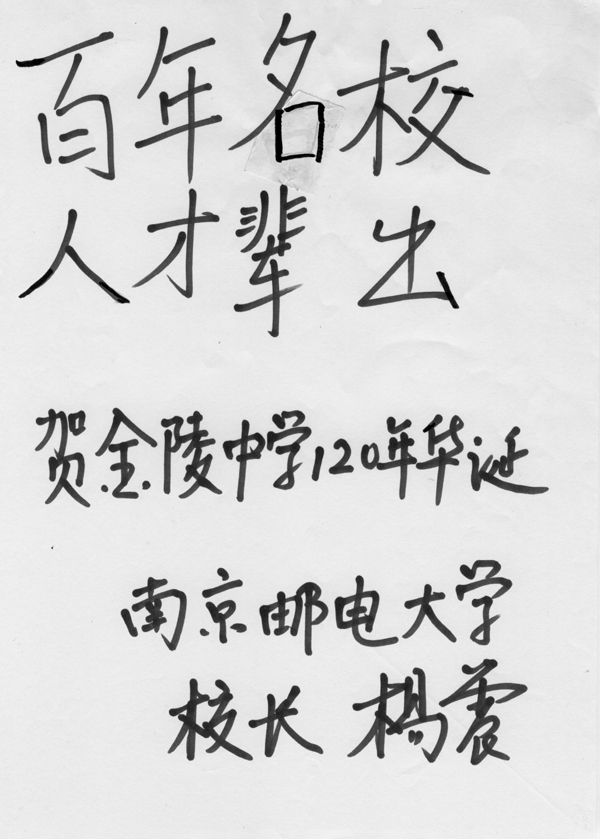 百年名校
人才辈出
贺金陵中学120年华诞
南京邮电大学
校长 楊震